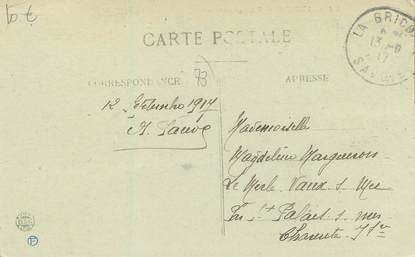 10 €
CARTE POSTALE
CORRESPONDANCE
73
ADRESSE
LA BRIGO
13 - 9
17
12 Settembre 1917
Mademoiselle
Magdeleine
Le Merle Vaux s Mer
Par St Palais s mer
Charente Infre